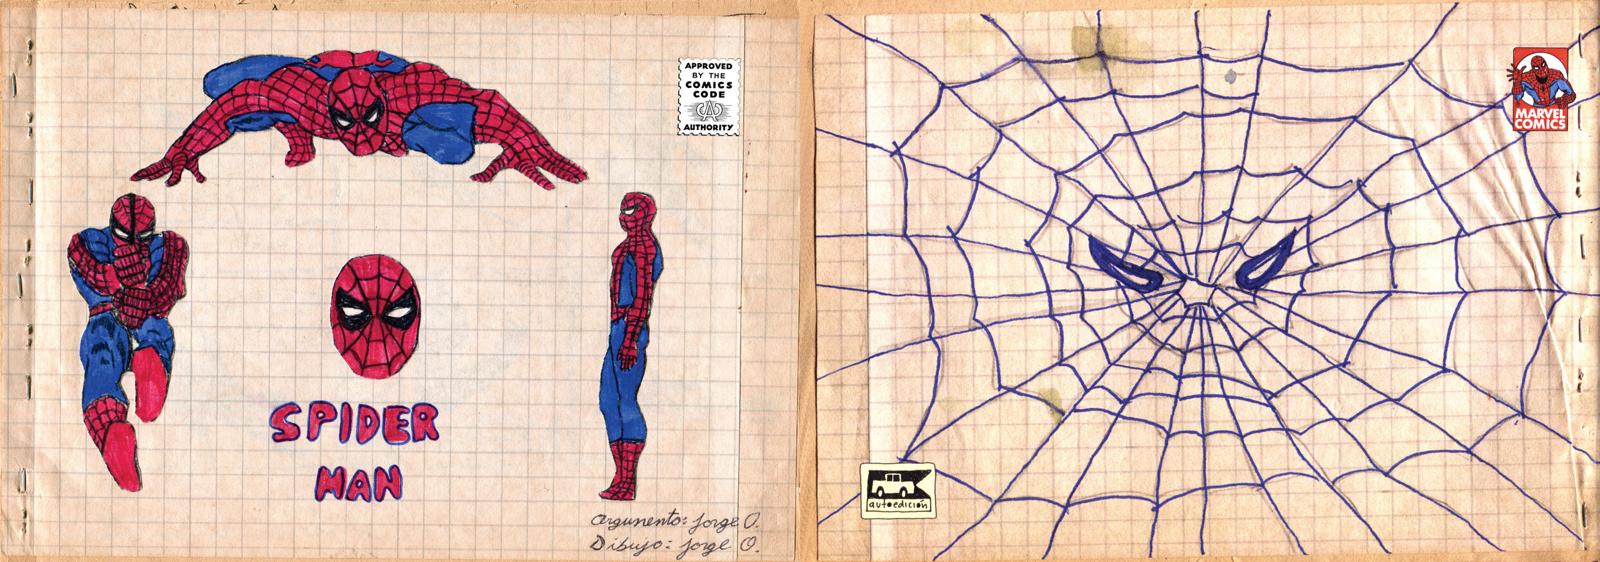 APPROVED
BY THE
COMICS
CODE
CA
AUTHORITY
SPIDER
MAN
Argumento: Jorge O.
Dibujo: Jorge O.
MARVEL
COMICS
autoedición